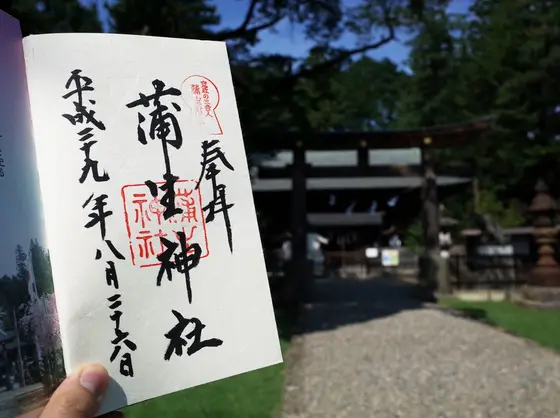 奉拝
蒲生神社
蒲生神社
平成二十九年八月二十六日